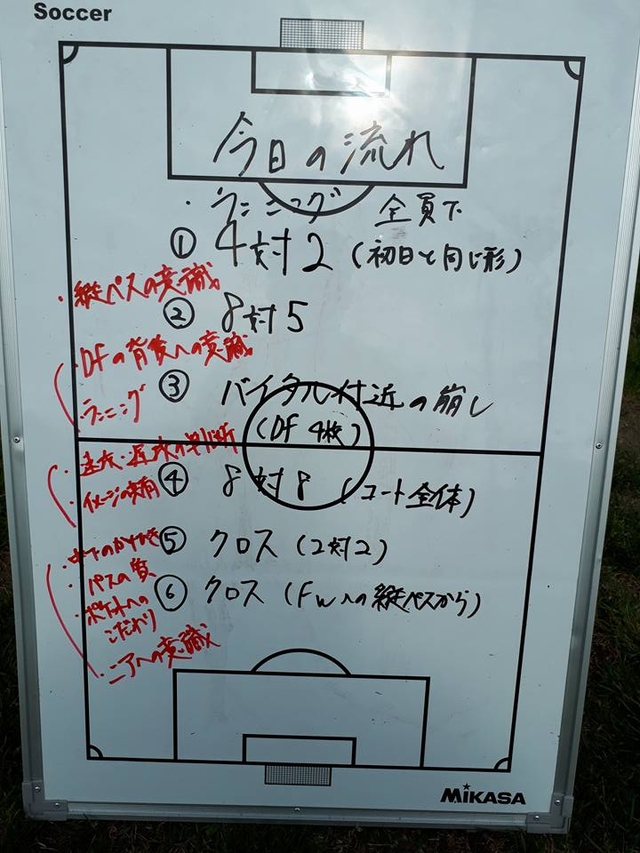 Soccer
今日の流れ
・ランニング 全員下
① 4対2 (初日と同じ形)
・縦パスの意識
② 8対5
・DFの背後への意識
・ランニング
③ バイタル付近の崩し
(DF 4枚)
・速攻・遅攻の判断
・イメージの共有
④ 8対8 (コート全体)
⑤ クロス (2対2)
・パスの質
⑥ クロス (FWへの縦パスから)
・ポケットへの
こだわり
・ニアへの意識
MIKASA